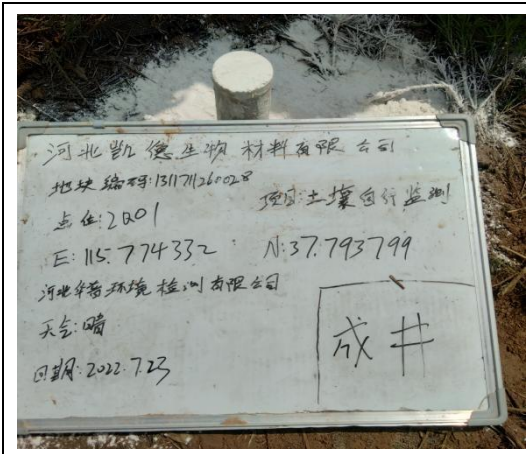 河北凯德生物材料有限公司
地块编码:1311711260028
项目:土壤自行监测
点位:2Q01
E: 115.774332 N:37.793799
河北华普环境检测有限公司
天气:晴
成井
日期:2022.7.23